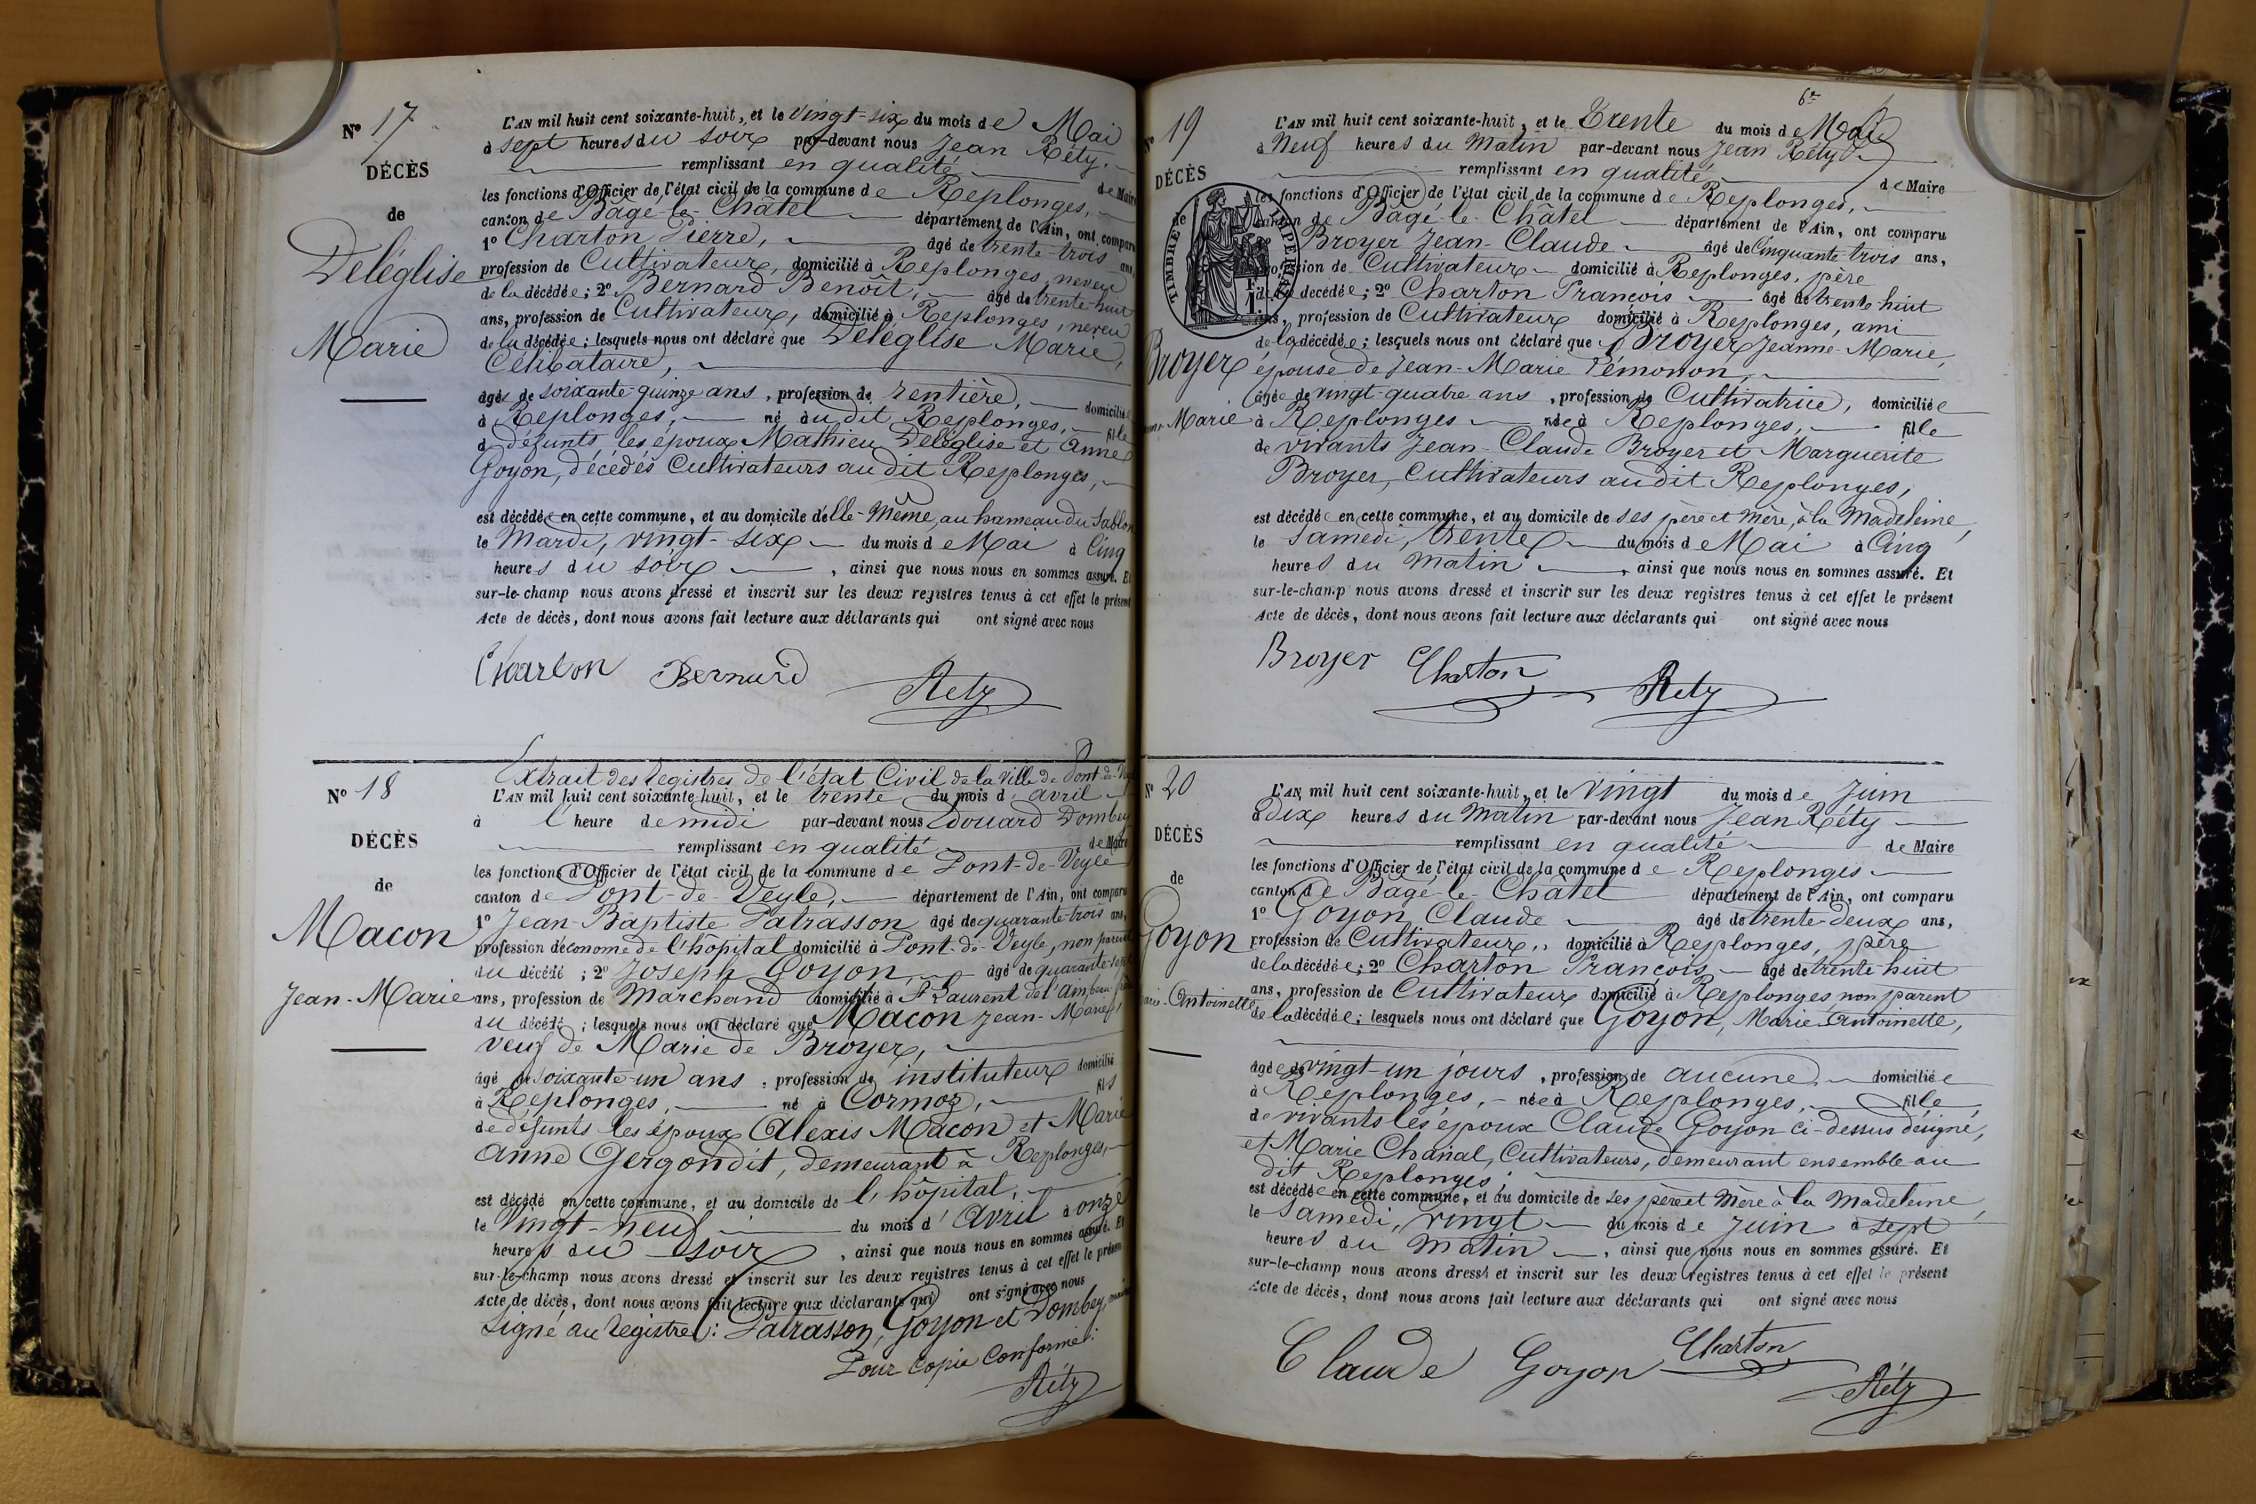 Nº 17
DÉCÈS
de
Deléglise
Marie
L'AN mil huit cent soixante-huit, et le vingt-six du mois de Mai
à sept heures du soir par-devant nous Jean Réty,
remplissant en qualité de Maire
les fonctions d'Officier de l'état civil de la commune de Replonges,
canton de Bâgé-le-Châtel département de l'Ain, ont comparu
1º Charton Pierre, âgé de trente-trois ans,
profession de Cultivateur, domicilié à Replonges, neveu
de la décédée; 2º Bernard Benoît, âgé de trente-huit
ans, profession de Cultivateur, domicilié à Replonges, neveu
de la décédée; lesquels nous ont déclaré que Deléglise Marie,
Célibataire,
âgée de soixante-quinze ans, profession de rentière, domiciliée
à Replonges, né audit Replonges, fille
de défunts les époux Mathieu Deléglise et Anne
Goyon, décédés Cultivateurs audit Replonges,
est décédée en cette commune, et au domicile d'elle-Même, au hameau du Sablon
le Mardi, vingt-six du mois de Mai à Cinq
heures du soir, ainsi que nous nous en sommes assuré. Et
sur-le-champ nous avons dressé et inscrit sur les deux registres tenus à cet effet le présent
Acte de décès, dont nous avons fait lecture aux déclarants qui ont signé avec nous
Charton Bernard Réty
Nº 18
DÉCÈS
de
Macon
Jean-Marie
Extrait des registres de l'état Civil de la ville de Pont-de-
L'AN mil huit cent soixante-huit, et le trente du mois d'avril
à l'heure de midi par-devant nous Edouard Dombey
remplissant en qualité de Maire
les fonctions d'Officier de l'état civil de la commune de Pont-de-Veyle
canton de Pont-de-Veyle, département de l'Ain, ont comparu
1º Jean-Baptiste Patrasson âgé de quarante-trois ans,
profession d'économe de l'hôpital domicilié à Pont-de-Veyle, non parent
du décédé; 2º Joseph Goyon, âgé de quarante-sept
ans, profession de Marchand domicilié à St Laurent de l'ain, beau
du décédé; lesquels nous ont déclaré que Macon Jean-Marie,
veuf de Marie de Broyer,
âgé de soixante-un ans, profession de instituteur domicilié
à Replonges, né à Cormoz, fils
de défunts les époux Alexis Macon et Marie
Anne Gergondit, demeurant à Replonges,
est décédé en cette commune, et au domicile de l'hôpital,
le vingt-neuf du mois d'Avril à onze
heures du soir, ainsi que nous nous en sommes assuré. Et
sur-le-champ nous avons dressé et inscrit sur les deux registres tenus à cet effet le présent
Acte de décès, dont nous avons fait lecture aux déclarants qui ont signé avec nous
Signé au registre: Patrasson, Goyon et Dombey,
Pour Copie Conforme:
Réty
Nº 19
DÉCÈS
de
Broyer
Marie
TIMBRE IMPERIAL
L'AN mil huit cent soixante-huit, et le Trente du mois de Mai
à Neuf heures du Matin par-devant nous Jean Réty
remplissant en qualité de Maire
les fonctions d'Officier de l'état civil de la commune de Replonges,
canton de Bâgé-le-Châtel département de l'Ain, ont comparu
Broyer Jean-Claude âgé de Cinquante-trois ans,
profession de Cultivateur domicilié à Replonges, père
de la décédée; 2º Charton François âgé de trente-huit
ans, profession de Cultivateur domicilié à Replonges, ami
de la décédée; lesquels nous ont déclaré que Broyer Jeanne-Marie,
épouse de Jean-Marie Pémonon,
âgée de vingt-quatre ans, profession de Cultivatrice, domiciliée
à Replonges née à Replonges, fille
de vivants Jean-Claude Broyer et Marguerite
Broyer, Cultivateurs audit Replonges,
est décédée en cette commune, et au domicile de ses père et mère, à la Madeleine,
le Samedi, trente du mois de Mai à Cinq
heures du Matin, ainsi que nous nous en sommes assuré. Et
sur-le-champ nous avons dressé et inscrit sur les deux registres tenus à cet effet le présent
Acte de décès, dont nous avons fait lecture aux déclarants qui ont signé avec nous
Broyer Charton Réty
Nº 20
DÉCÈS
de
Goyon
Marie-Antoinette
L'AN mil huit cent soixante-huit, et le Vingt du mois de Juin
à dix heures du Matin par-devant nous Jean Réty
remplissant en qualité de Maire
les fonctions d'Officier de l'état civil de la commune de Replonges
canton de Bâgé-le-Châtel département de l'Ain, ont comparu
1º Goyon Claude âgé de trente-deux ans,
profession de Cultivateur, domicilié à Replonges, père
de la décédée; 2º Charton François âgé de trente-huit
ans, profession de Cultivateur domicilié à Replonges non parent
de la décédée; lesquels nous ont déclaré que Goyon, Marie-Antoinette,
âgée de vingt-un jours, profession de aucune, domiciliée
à Replonges, née à Replonges, fille
de vivants les époux Claude Goyon ci-dessus désigné,
et Marie Chanal, Cultivateurs, demeurant ensemble au
dit Replonges,
est décédée en cette commune, et au domicile de ses père et mère à la Madeleine,
le Samedi, vingt du mois de Juin à sept
heures du Matin, ainsi que nous nous en sommes assuré. Et
sur-le-champ nous avons dressé et inscrit sur les deux registres tenus à cet effet le présent
Acte de décès, dont nous avons fait lecture aux déclarants qui ont signé avec nous
Claude Goyon Charton
Réty